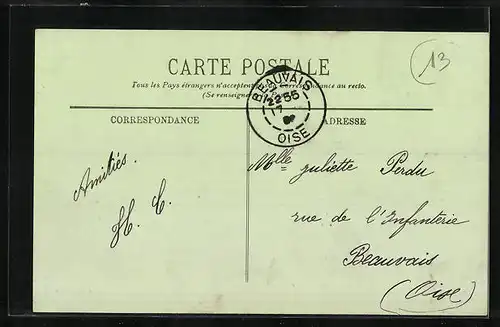 13
CARTE POSTALE
Tous les Pays étrangers n'acceptent pas la Correspondance au recto.
(Se renseigner
BEAUVAIS
22 55
17
OISE
CORRESPONDANCE
ADRESSE
Amitiés.
H. C.
Mlle Juliette Perdu
rue de l'Infanterie
Beauvais
(Oise)